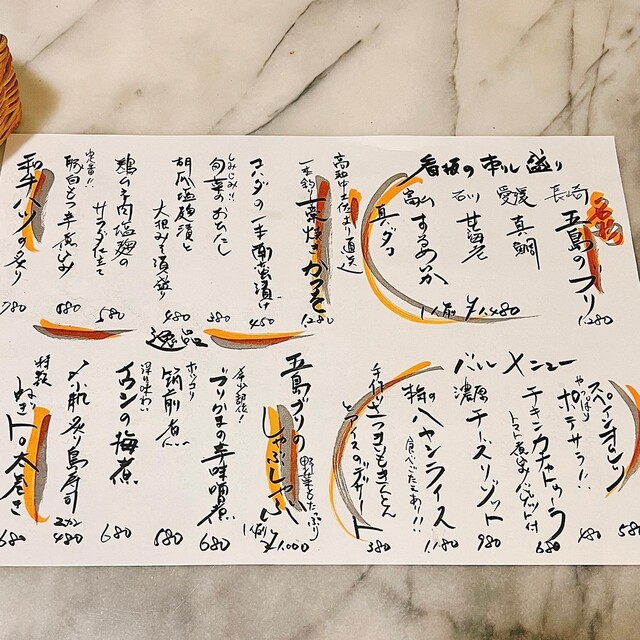 長崎
五島のブリ
1,280
看板の刺し盛り
愛媛 真鯛
石川 甘海老
するめいか
真ダコ
1人前 ¥1,480
高知中土佐より直送
一本釣り 藁焼きかつを
1,280
コハダの
450
しみじみ!!
旬菜のおひたし
380
胡瓜塩麹漬と
大根みそ漬盛り
480
鶏ムネ肉塩麹の
サラダ仕立て
580
定番!!
豚白モツ辛煮込み
680
和牛ハツの炙り
980
バルメニュー
スペインオムレツ
580
やっぱり
ポテサラ!!
480
チキンカチャトゥラ
トマト煮込み バゲット付
680
濃厚
チーズリゾット
980
ハヤシライス
食べごたえあり!!
1,180
手作り
とアイスのデザート
380
逸品
五島ブリの
しゃぶしゃぶ
野菜もたっぷり
1人前 ¥1,000
希少部位!
ブリかまの辛味噌煮
680
ホッコリ
筑前煮
580
深い味わい
イワシの梅煮
680
〆小肌 炙り島寿司
2カン 480
特製
ねぎトロ太巻き
680